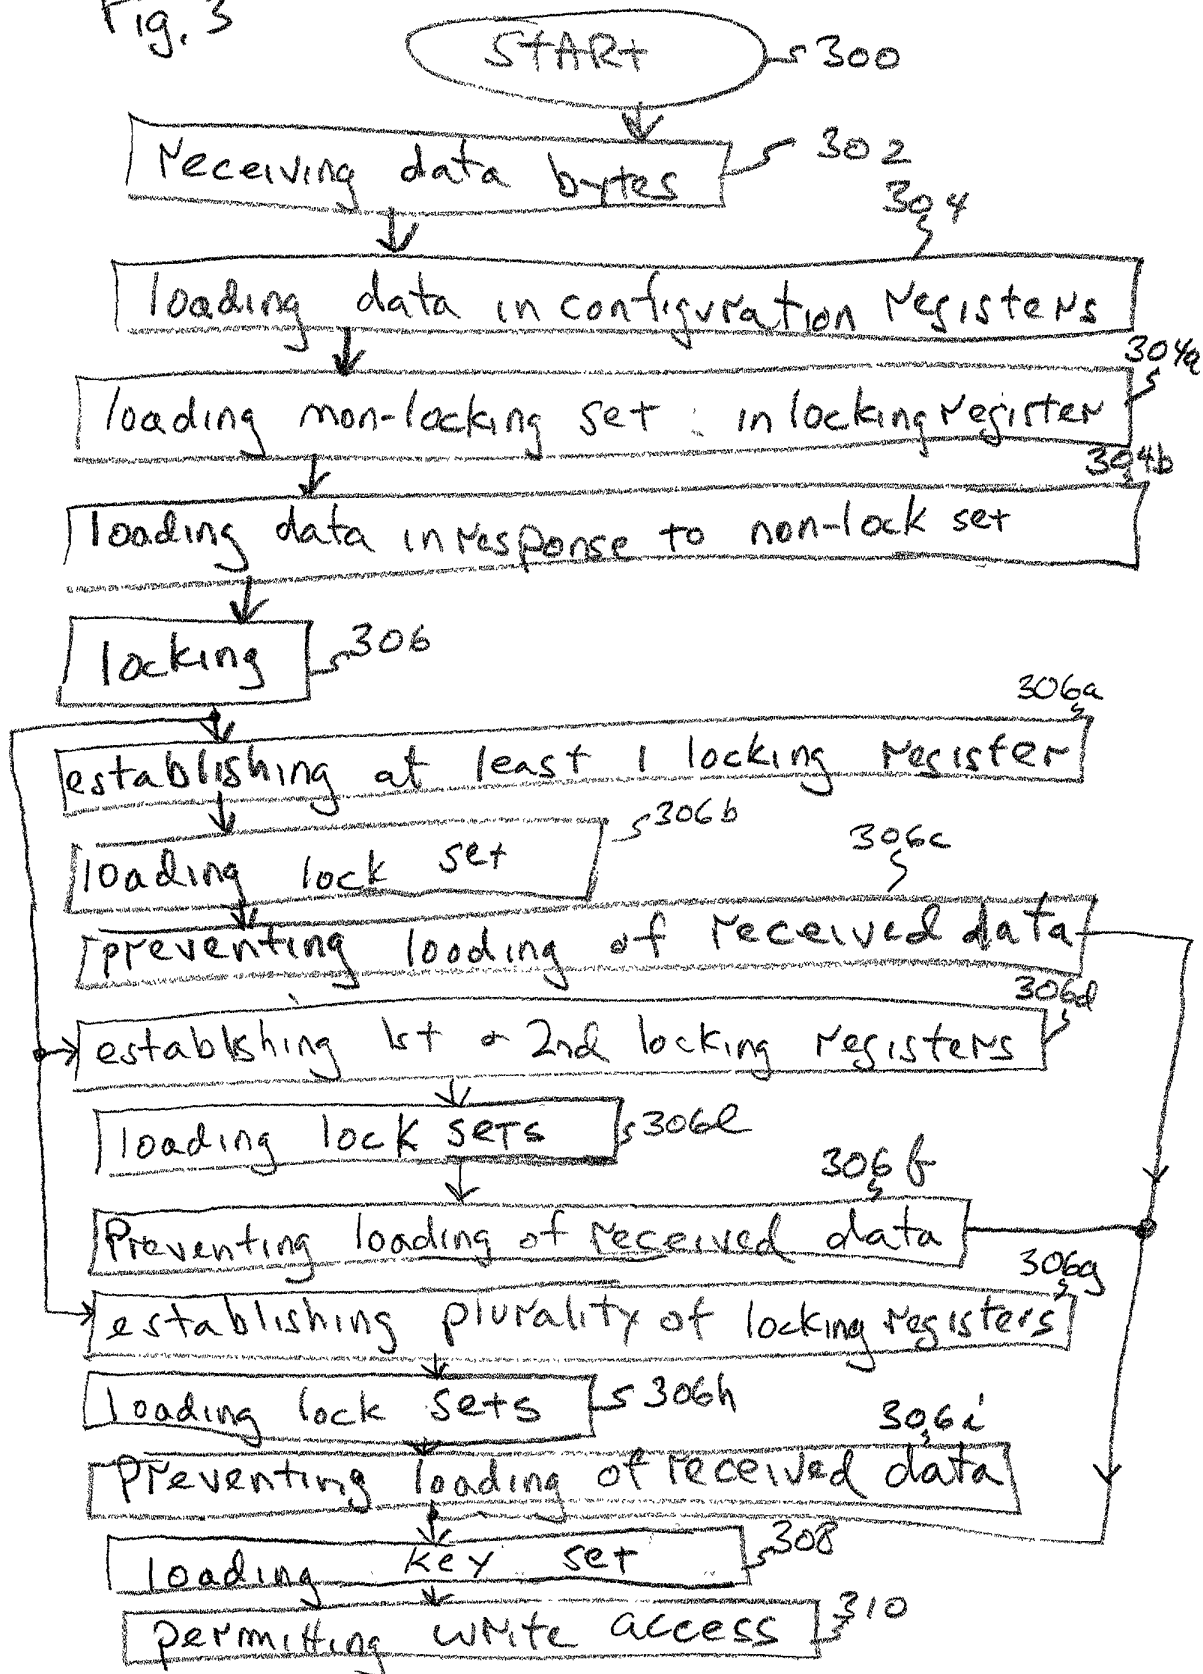 Fig. 3
START 300
receiving data bytes 302
304
loading data in configuration registers
304a
loading non-locking set in locking register
304b
loading data in response to non-lock set
locking 306
306a
establishing at least 1 locking register
306b
loading lock set
306c
preventing loading of received data
306d
establishing 1st + 2nd locking registers
loading lock sets 306e
306f
Preventing loading of received data
306g
establishing plurality of locking registers
loading lock sets 306h
306i
Preventing loading of received data
loading key set 308
permitting write access 310